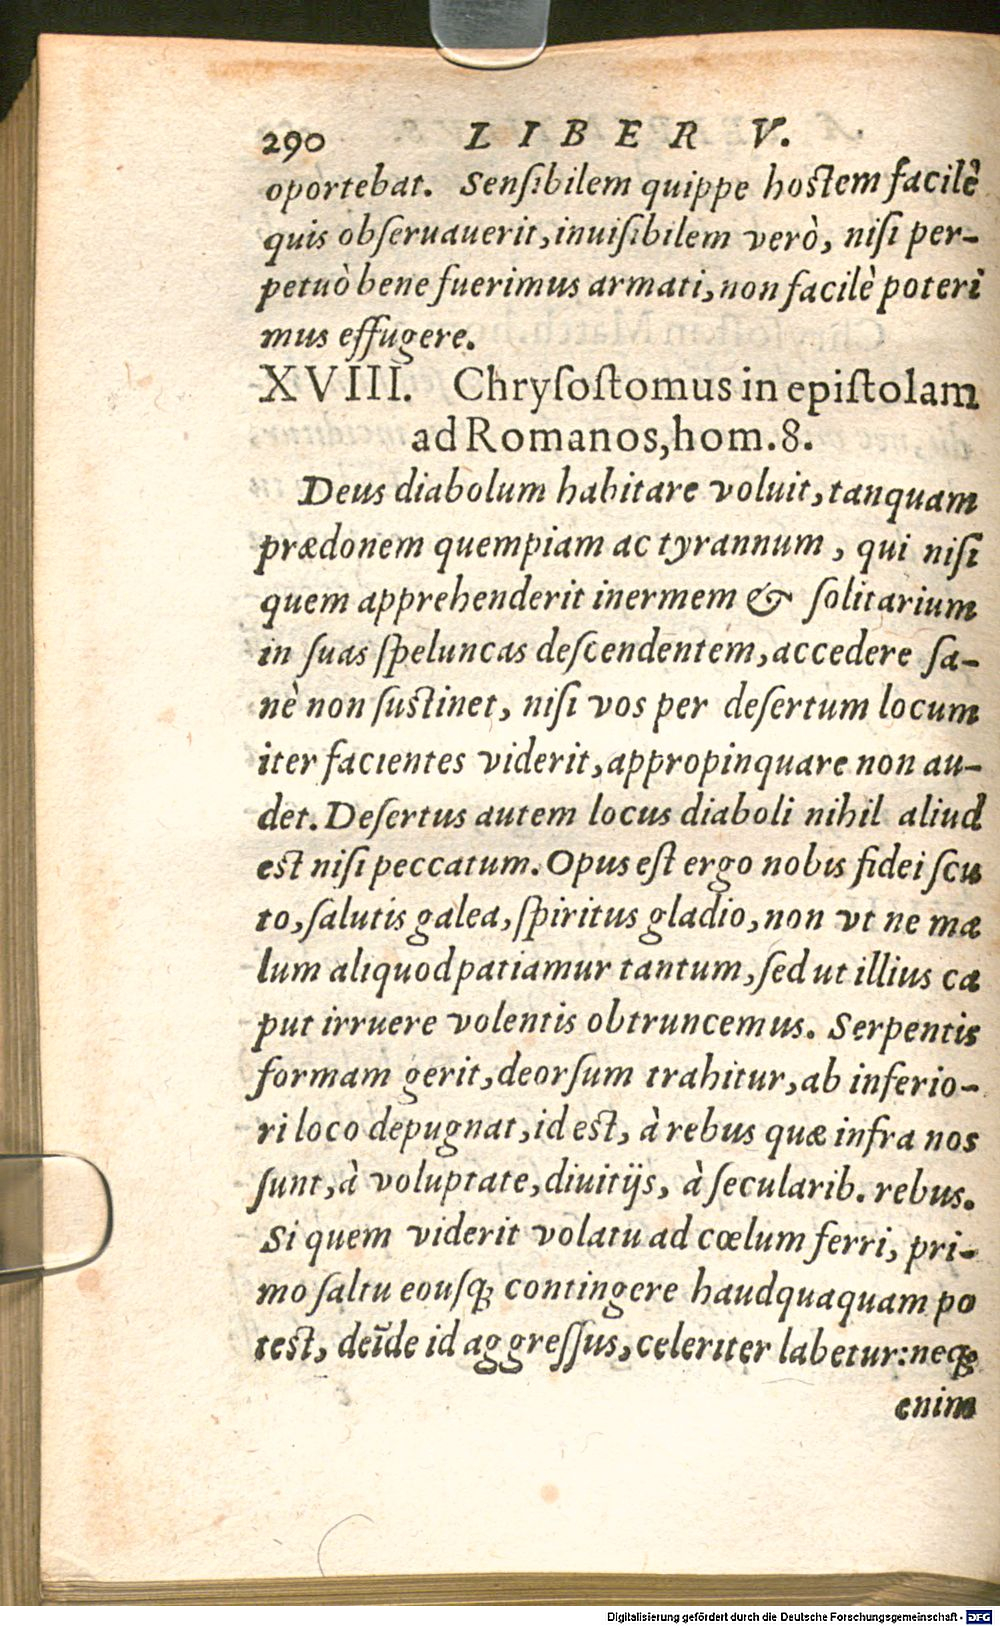 290 LIBER V.
oportebat. Senſibilem quippe hoſtem facilè
quis obſeruauerit, inuiſibilem verò, niſi per-
petuò bene fuerimus armati, non facilè poteri
mus effugere.
XVIII. Chryſoſtomus in epiſtolam
ad Romanos, hom. 8.
Deus diabolum habitare voluit, tanquam
prædonem quempiam ac tyrannum, qui niſi
quem apprehenderit inermem & ſolitarium
in ſuas ſpeluncas deſcendentem, accedere ſa-
nè non ſuſtinet, niſi vos per deſertum locum
iter facientes viderit, appropinquare non au-
det. Deſertus autem locus diaboli nihil aliud
eſt niſi peccatum. Opus eſt ergo nobis fidei ſcu
to, ſalutis galea, ſpiritus gladio, non vt ne ma
lum aliquod patiamur tantum, ſed ut illius ca
put irruere volentis obtruncemus. Serpentis
formam gerit, deorſum trahitur, ab inferio-
ri loco depugnat, id eſt, à rebus quæ infra nos
ſunt, à voluptate, diuitijs, à ſecularib. rebus.
Si quem viderit volatu ad cœlum ferri, pri-
mo ſaltu eouſq; contingere haudquaquam po
teſt, deīde id aggreſſus, celeriter labetur: neq;
enim
Digitalisierung gefördert durch die Deutsche Forschungsgemeinschaft - DFG